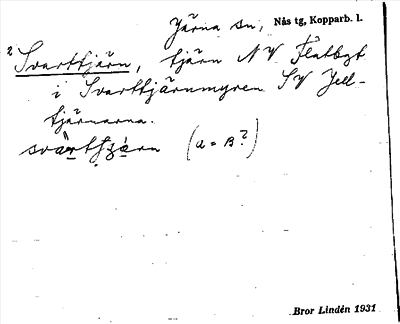 Järna sn, Nås tg, Kopparb. l.
2 Svarttjärn, tjärn NV Flatbgt
i Svarttjärnmyren SV Jell-
tjärnarna.
(a = B?)
Bror Lindén 1931